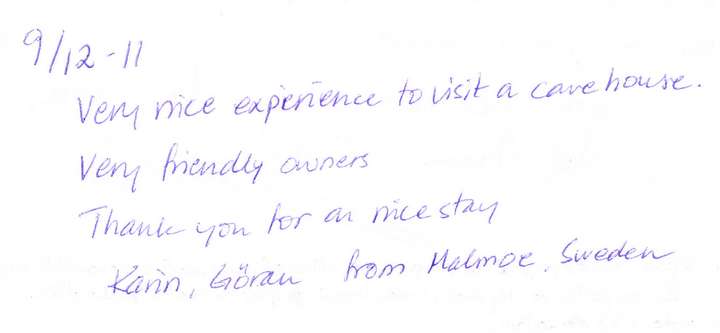 9/12-11
Very nice experience to visit a cave house.
Very friendly owners
Thank you for an nice stay
Karin, Göran from Malmoe, Sweden